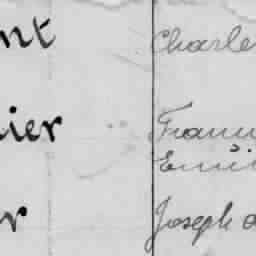 nt Charle
ier Franc
Emil
r Joseph